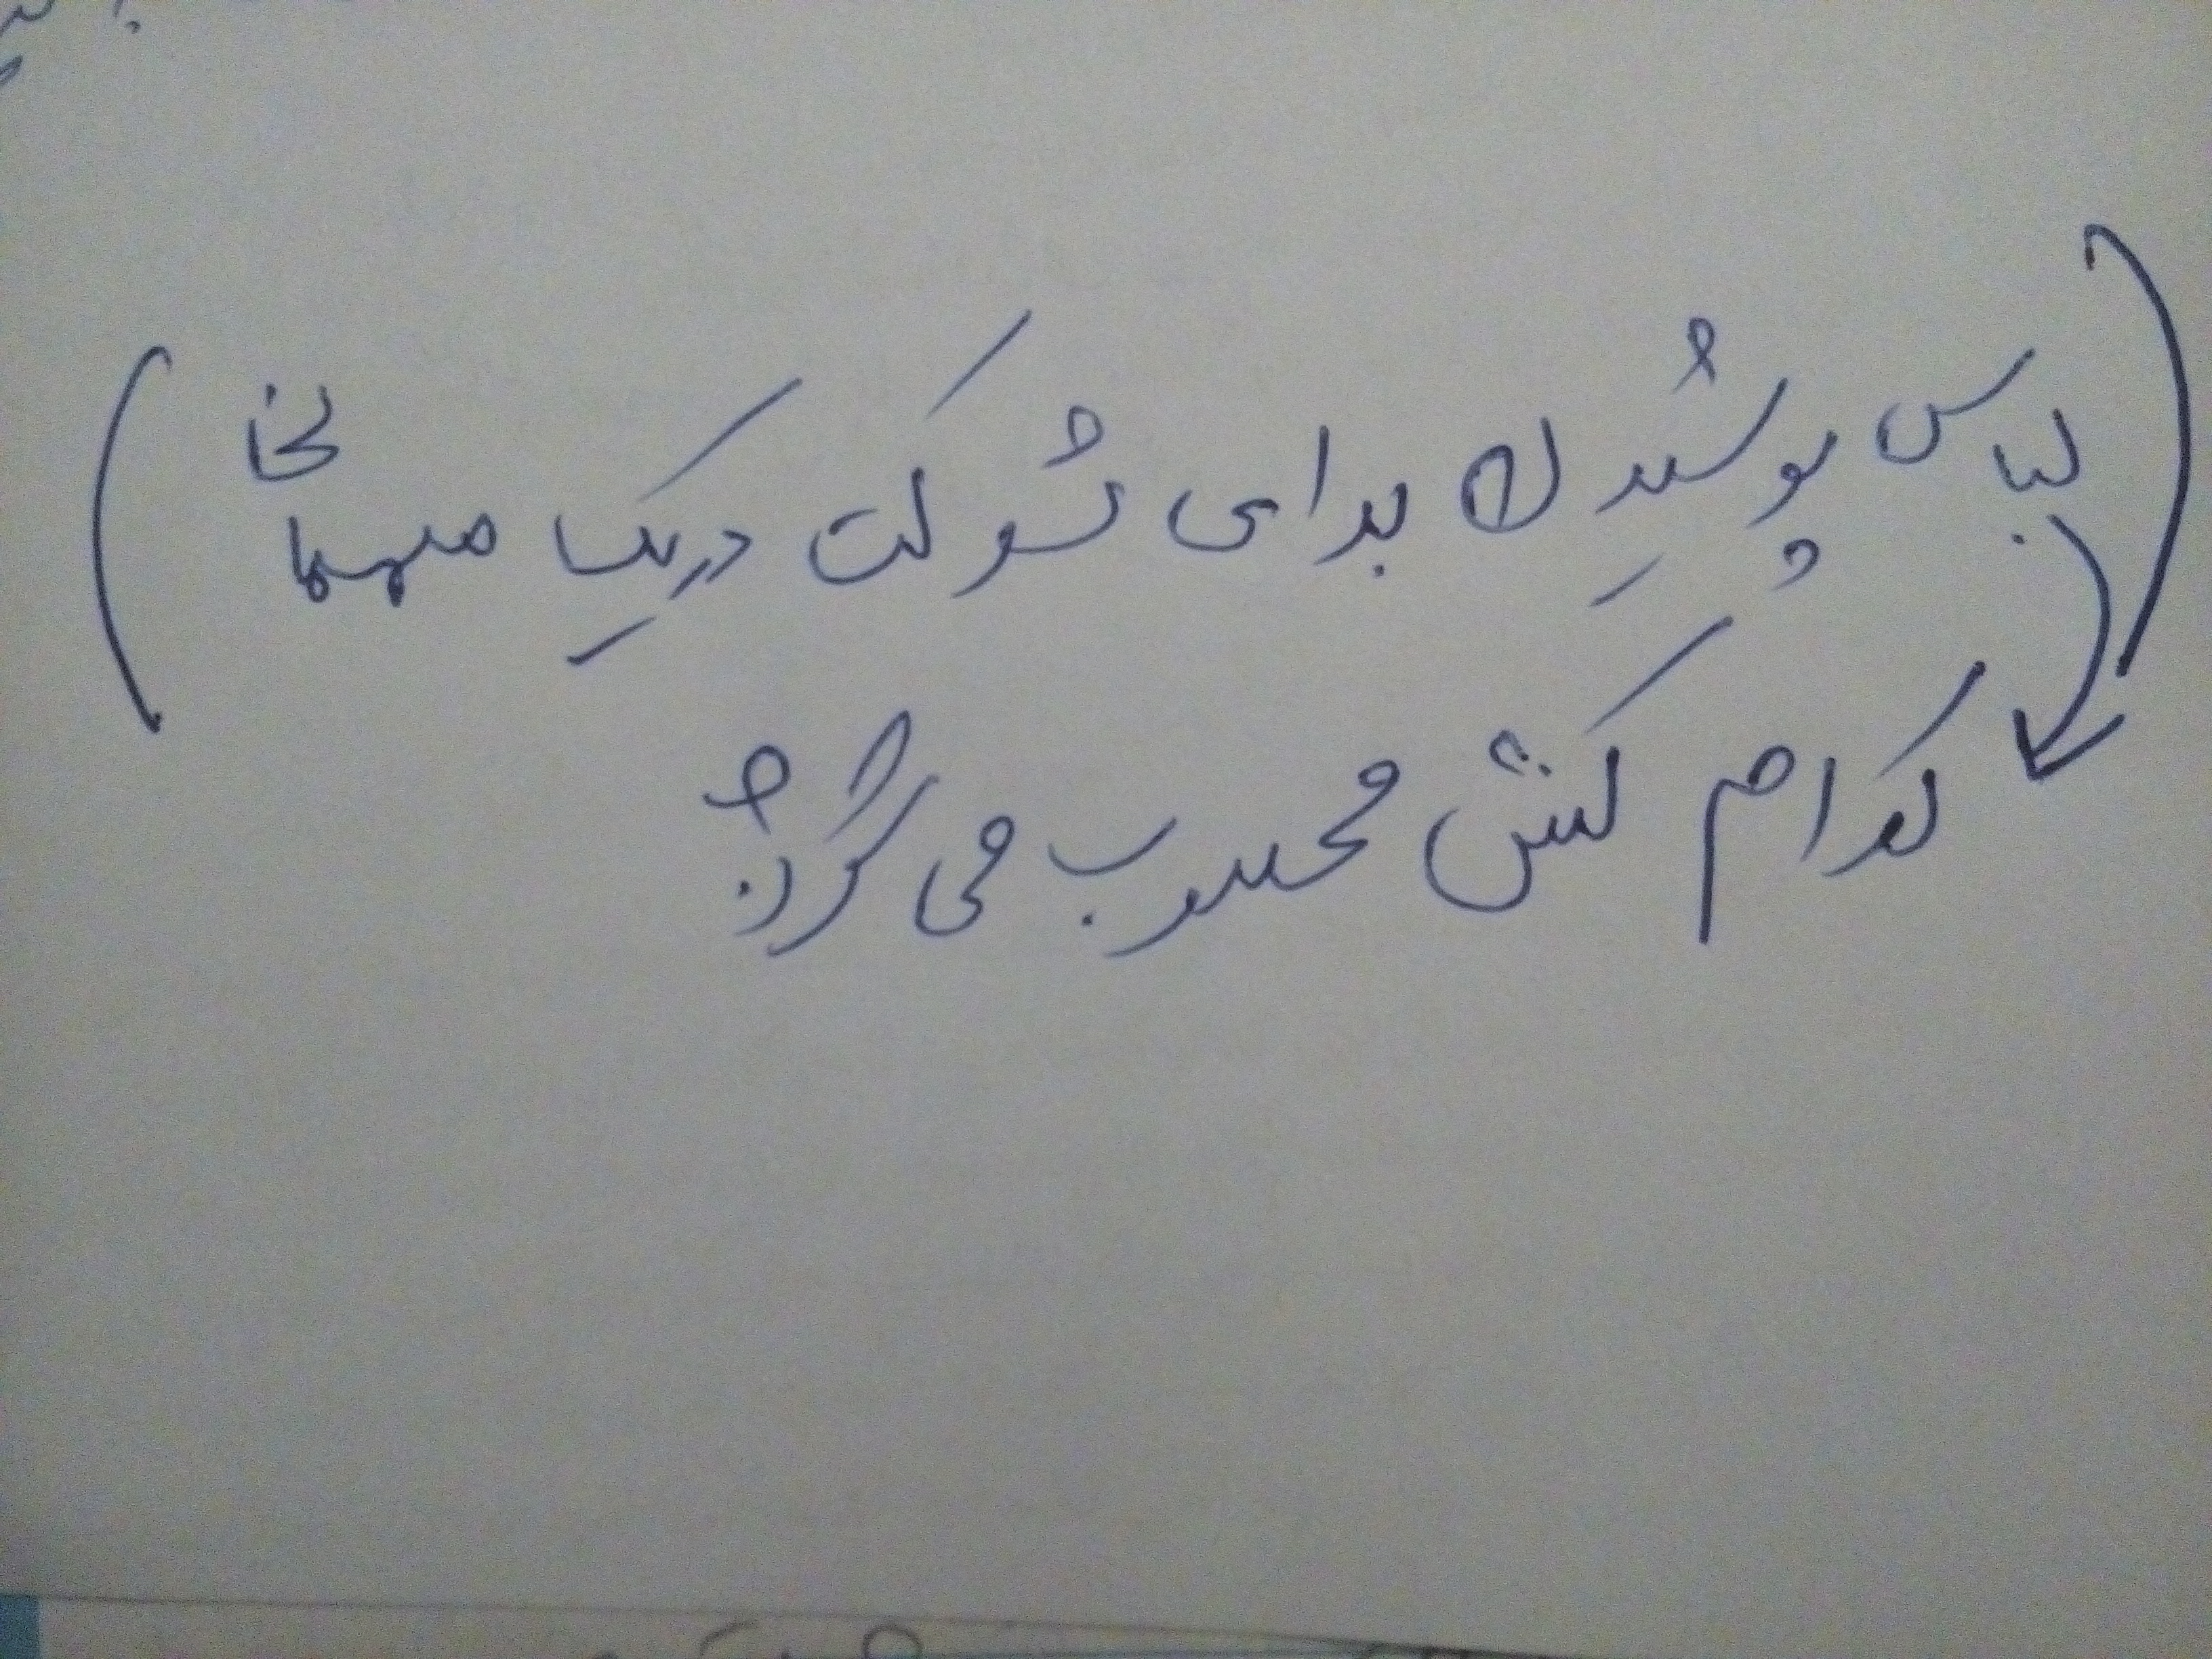 (لباس پوشیدن برای شرکت در یک میهمانی)
کدام کنش محسوب می گردد؟